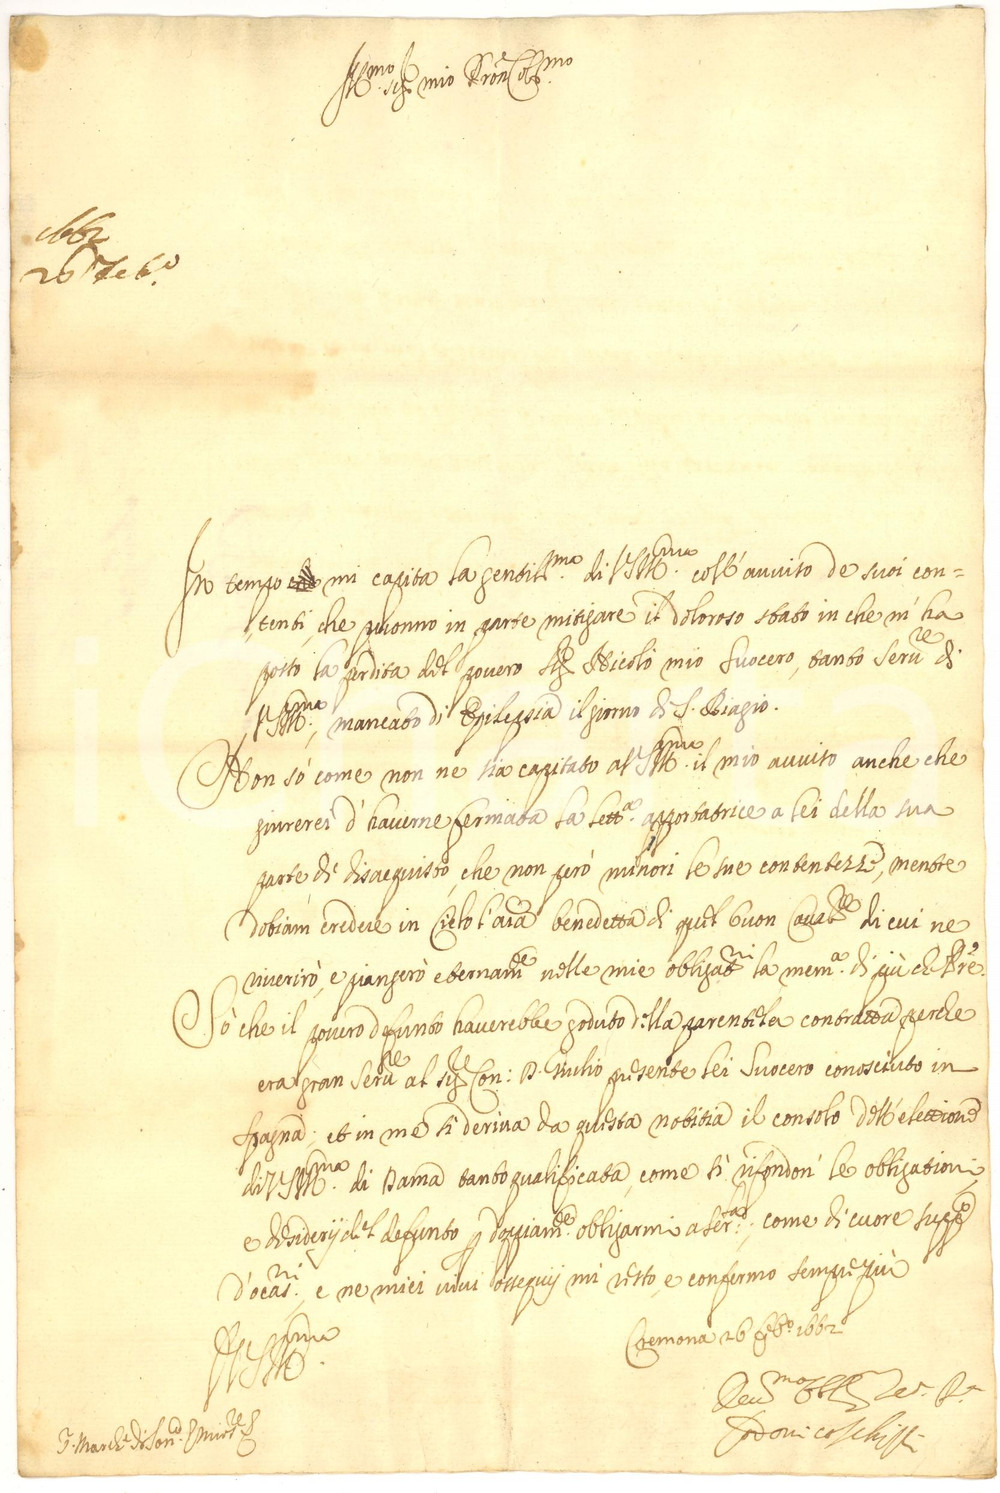 Ill.mo Sig.r mio Pron Col.mo
1662
26 Feb.o
In tempo mi capita la gentil.ma di V.S. Ill.ma coll'avviso de suoi con=
tenti, che ponno in parte mitigare il doloroso stato in che m'ha
posto la perdita del povero Sig.r Nicolò mio suocero, tanto Serv.re di
V.S. Ill.ma, mancato di Epilepsia il giorno di S. Biagio.
Non sò come non ne sia capitato a V.S. Ill.ma il mio avviso anche che
giurerei d'haverne fermata la lett.a apportatrice a lei della sua
parte di disacquisto, che non però minori le sue contentezze, mentre
dobiam credere in Cielo l'aīa benedetta di quel buon Caval.re di cui ne
riverirò, e piangerò eternam.te nelle mie obligat.ni la mem.a di più che Pre.
Sò che il povero defunto haverebbe goduto della parentela contratta perche
era gran Serv.re al Sig.r Con: D. Giulio presente lei Suocero conosciuto in
Spagna; et in me si deriva da questa notitia il consolo dell'elettione
di V.S. Ill.ma di Dama tanto qualificata, come si rifondon' le obligationi,
e desiderij del defunto p doppiam.te obligarmi a ser.la; come di cuore supp.co
d'ocas.ni, e ne miei vivi ossequij mi resto, e confermo sempre più
Di V.S. Ill.ma
Cremona 26 Feb.o 1662
Dev.mo Obl.mo Ser.
Schizzi
S. March.e di Son.